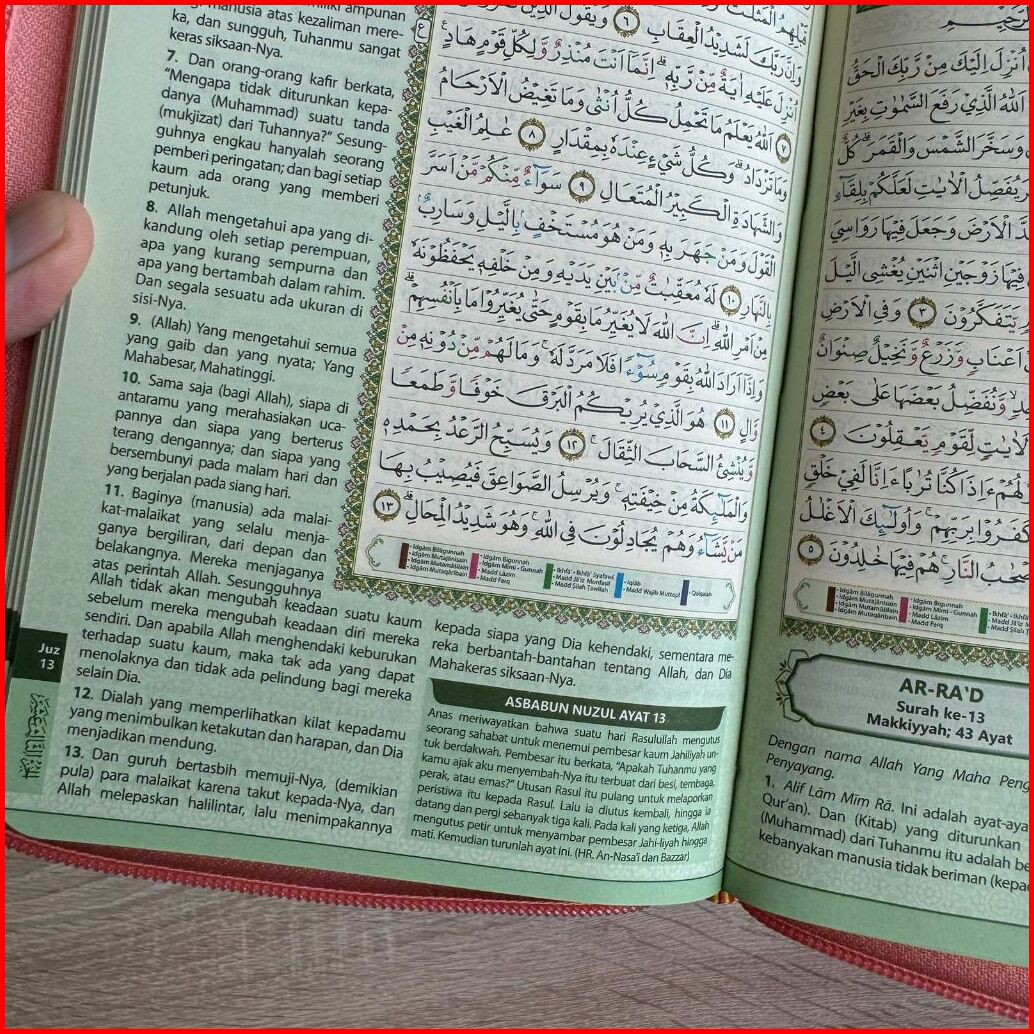 manusia atas kezaliman mere-
ka, dan sungguh, Tuhanmu sangat
keras siksaan-Nya.
7. Dan orang-orang kafir berkata,
"Mengapa tidak diturunkan kepa-
danya (Muhammad) suatu tanda
(mukjizat) dari Tuhannya?" Sesung-
guhnya engkau hanyalah seorang
pemberi peringatan; dan bagi setiap
kaum ada orang yang memberi
petunjuk.
8. Allah mengetahui apa yang di-
kandung oleh setiap perempuan,
apa yang kurang sempurna dan
apa yang bertambah dalam rahim.
Dan segala sesuatu ada ukuran di
sisi-Nya.
9. (Allah) Yang mengetahui semua
yang gaib dan yang nyata; Yang
Mahabesar, Mahatinggi.
10. Sama saja (bagi Allah), siapa di
antaramu yang merahasiakan uca-
pannya dan siapa yang berterus
terang dengannya; dan siapa yang
bersembunyi pada malam hari dan
yang berjalan pada siang hari.
11. Baginya (manusia) ada malai-
kat-malaikat yang selalu menja-
ganya bergiliran, dari depan dan
belakangnya. Mereka menjaganya
atas perintah Allah. Sesungguhnya
Allah tidak akan mengubah keadaan suatu kaum
sebelum mereka mengubah keadaan diri mereka
sendiri. Dan apabila Allah menghendaki keburukan
terhadap suatu kaum, maka tak ada yang dapat
menolaknya dan tidak ada pelindung bagi mereka
selain Dia.
12. Dialah yang memperlihatkan kilat kepadamu
yang menimbulkan ketakutan dan harapan, dan Dia
menjadikan mendung.
13. Dan guruh bertasbih memuji-Nya, (demikian
pula) para malaikat karena takut kepada-Nya, dan
Allah melepaskan halilintar, lalu menimpakannya
Juz
13
وَاِنَّ رَبَّكَ لَشَدِيْدُ الْعِقَابِ ٦ وَيَقُوْلُ الَّذِيْنَ
اُنْزِلَ عَلَيْهِ اٰيَةٌ مِّنْ رَّبِّهٖۗ اِنَّمَآ اَنْتَ مُنْذِرٌ وَّلِكُلِّ قَوْمٍ هَادٍ
٧ اَللّٰهُ يَعْلَمُ مَا تَحْمِلُ كُلُّ اُنْثٰى وَمَا تَغِيْضُ الْاَرْحَامُ
وَمَا تَزْدَادُۗ وَكُلُّ شَيْءٍ عِنْدَهٗ بِمِقْدَارٍ ٨ عٰلِمُ الْغَيْبِ
وَالشَّهَادَةِ الْكَبِيْرُ الْمُتَعَالِ ٩ سَوَآءٌ مِّنْكُمْ مَّنْ اَسَرَّ
الْقَوْلَ وَمَنْ جَهَرَ بِهٖ وَمَنْ هُوَ مُسْتَخْفٍۢ بِالَّيْلِ وَسَارِبٌۢ
بِالنَّهَارِ ١٠ لَهٗ مُعَقِّبٰتٌ مِّنْۢ بَيْنِ يَدَيْهِ وَمِنْ خَلْفِهٖ يَحْفَظُوْنَهٗ
مِنْ اَمْرِ اللّٰهِۗ اِنَّ اللّٰهَ لَا يُغَيِّرُ مَا بِقَوْمٍ حَتّٰى يُغَيِّرُوْا مَا بِاَنْفُسِهِمْۗ
وَاِذَآ اَرَادَ اللّٰهُ بِقَوْمٍ سُوْۤءًا فَلَا مَرَدَّ لَهٗۚ وَمَا لَهُمْ مِّنْ دُوْنِهٖ مِنْ
وَّالٍ ١١ هُوَ الَّذِيْ يُرِيْكُمُ الْبَرْقَ خَوْفًا وَّطَمَعًا
وَّيُنْشِئُ السَّحَابَ الثِّقَالَۚ ١٢ وَيُسَبِّحُ الرَّعْدُ بِحَمْدِهٖ
وَالْمَلٰۤىِٕكَةُ مِنْ خِيْفَتِهٖۚ وَيُرْسِلُ الصَّوَاعِقَ فَيُصِيْبُ بِهَا
مَنْ يَّشَآءُ وَهُمْ يُجَادِلُوْنَ فِى اللّٰهِۚ وَهُوَ شَدِيْدُ الْمِحَالِۗ ١٣
• Idgām Bilāgunnah
• Idgām Mutajānisain
• Idgām Mutamāṡilain
• Idgām Mutaqāribain
• Idgām Bigunnah
• Idgām Mīmī - Gunnah
• Madd Lāzim
• Madd Farq
• Ikhfā' - Ikhfā' Syafawī
• Madd Jā'iz Munfaṣil
• Madd Ṣilah Ṭawīlah
• Iqlāb
• Madd Wajib Muttaṣil
• Qalqalah
kepada siapa yang Dia kehendaki, sementara me-
reka berbantah-bantahan tentang Allah, dan Dia
Mahakeras siksaan-Nya.
ASBABUN NUZUL AYAT 13
Anas meriwayatkan bahwa suatu hari Rasulullah mengutus
seorang sahabat untuk menemui pembesar kaum Jahiliyah un-
tuk berdakwah. Pembesar itu berkata, "Apakah Tuhanmu yang
kamu ajak aku menyembah-Nya itu terbuat dari besi, tembaga,
perak, atau emas?" Utusan Rasul itu pulang untuk melaporkan
peristiwa itu kepada Rasul. Lalu ia diutus kembali, hingga ia
datang dan pergi sebanyak tiga kali. Pada kali yang ketiga, Allah
mengutus petir untuk menyambar pembesar Jahi-liyah hingga
mati. Kemudian turunlah ayat ini. (HR. An-Nasa'i dan Bazzar)
اُنْزِلَ اِلَيْكَ مِنْ رَّبِّكَ الْحَقُّ
اَللّٰهُ الَّذِيْ رَفَعَ السَّمٰوٰتِ بِغَيْرِ
وَسَخَّرَ الشَّمْسَ وَالْقَمَرَۗ كُلٌّ
يُفَصِّلُ الْاٰيٰتِ لَعَلَّكُمْ بِلِقَآءِ
الْاَرْضَ وَجَعَلَ فِيْهَا رَوَاسِيَ
فِيْهَا زَوْجَيْنِ اثْنَيْنِ يُغْشِى الَّيْلَ
يَّتَفَكَّرُوْنَ ٣ وَفِى الْاَرْضِ
اَعْنَابٍ وَّزَرْعٌ وَّنَخِيْلٌ صِنْوَانٌ
وَّنُفَضِّلُ بَعْضَهَا عَلٰى بَعْضٍ
لَاٰيٰتٍ لِّقَوْمٍ يَّعْقِلُوْنَ ٤
ءَاِذَا كُنَّا تُرٰبًا ءَاِنَّا لَفِيْ خَلْقٍ
كَفَرُوْا بِرَبِّهِمْۚ وَاُولٰۤىِٕكَ الْاَغْلٰلُ
النَّارِۚ هُمْ فِيْهَا خٰلِدُوْنَ ٥
• Idgām Bilāgunnah
• Idgām Mutajānisain
• Idgām Mutamāṡilain
• Idgām Mutaqāribain
• Idgām Bigunnah
• Idgām Mīmī - Gunnah
• Madd Lāzim
• Madd Farq
AR-RA'D
Surah ke-13
Makkiyyah; 43 Ayat
Dengan nama Allah Yang Maha
Penyayang.
1. Alif Lām Mīm Rā. Ini adalah
Qur'an). Dan (Kitab) yang diturunkan
(Muhammad) dari Tuhanmu itu adalah
kebanyakan manusia tidak beriman